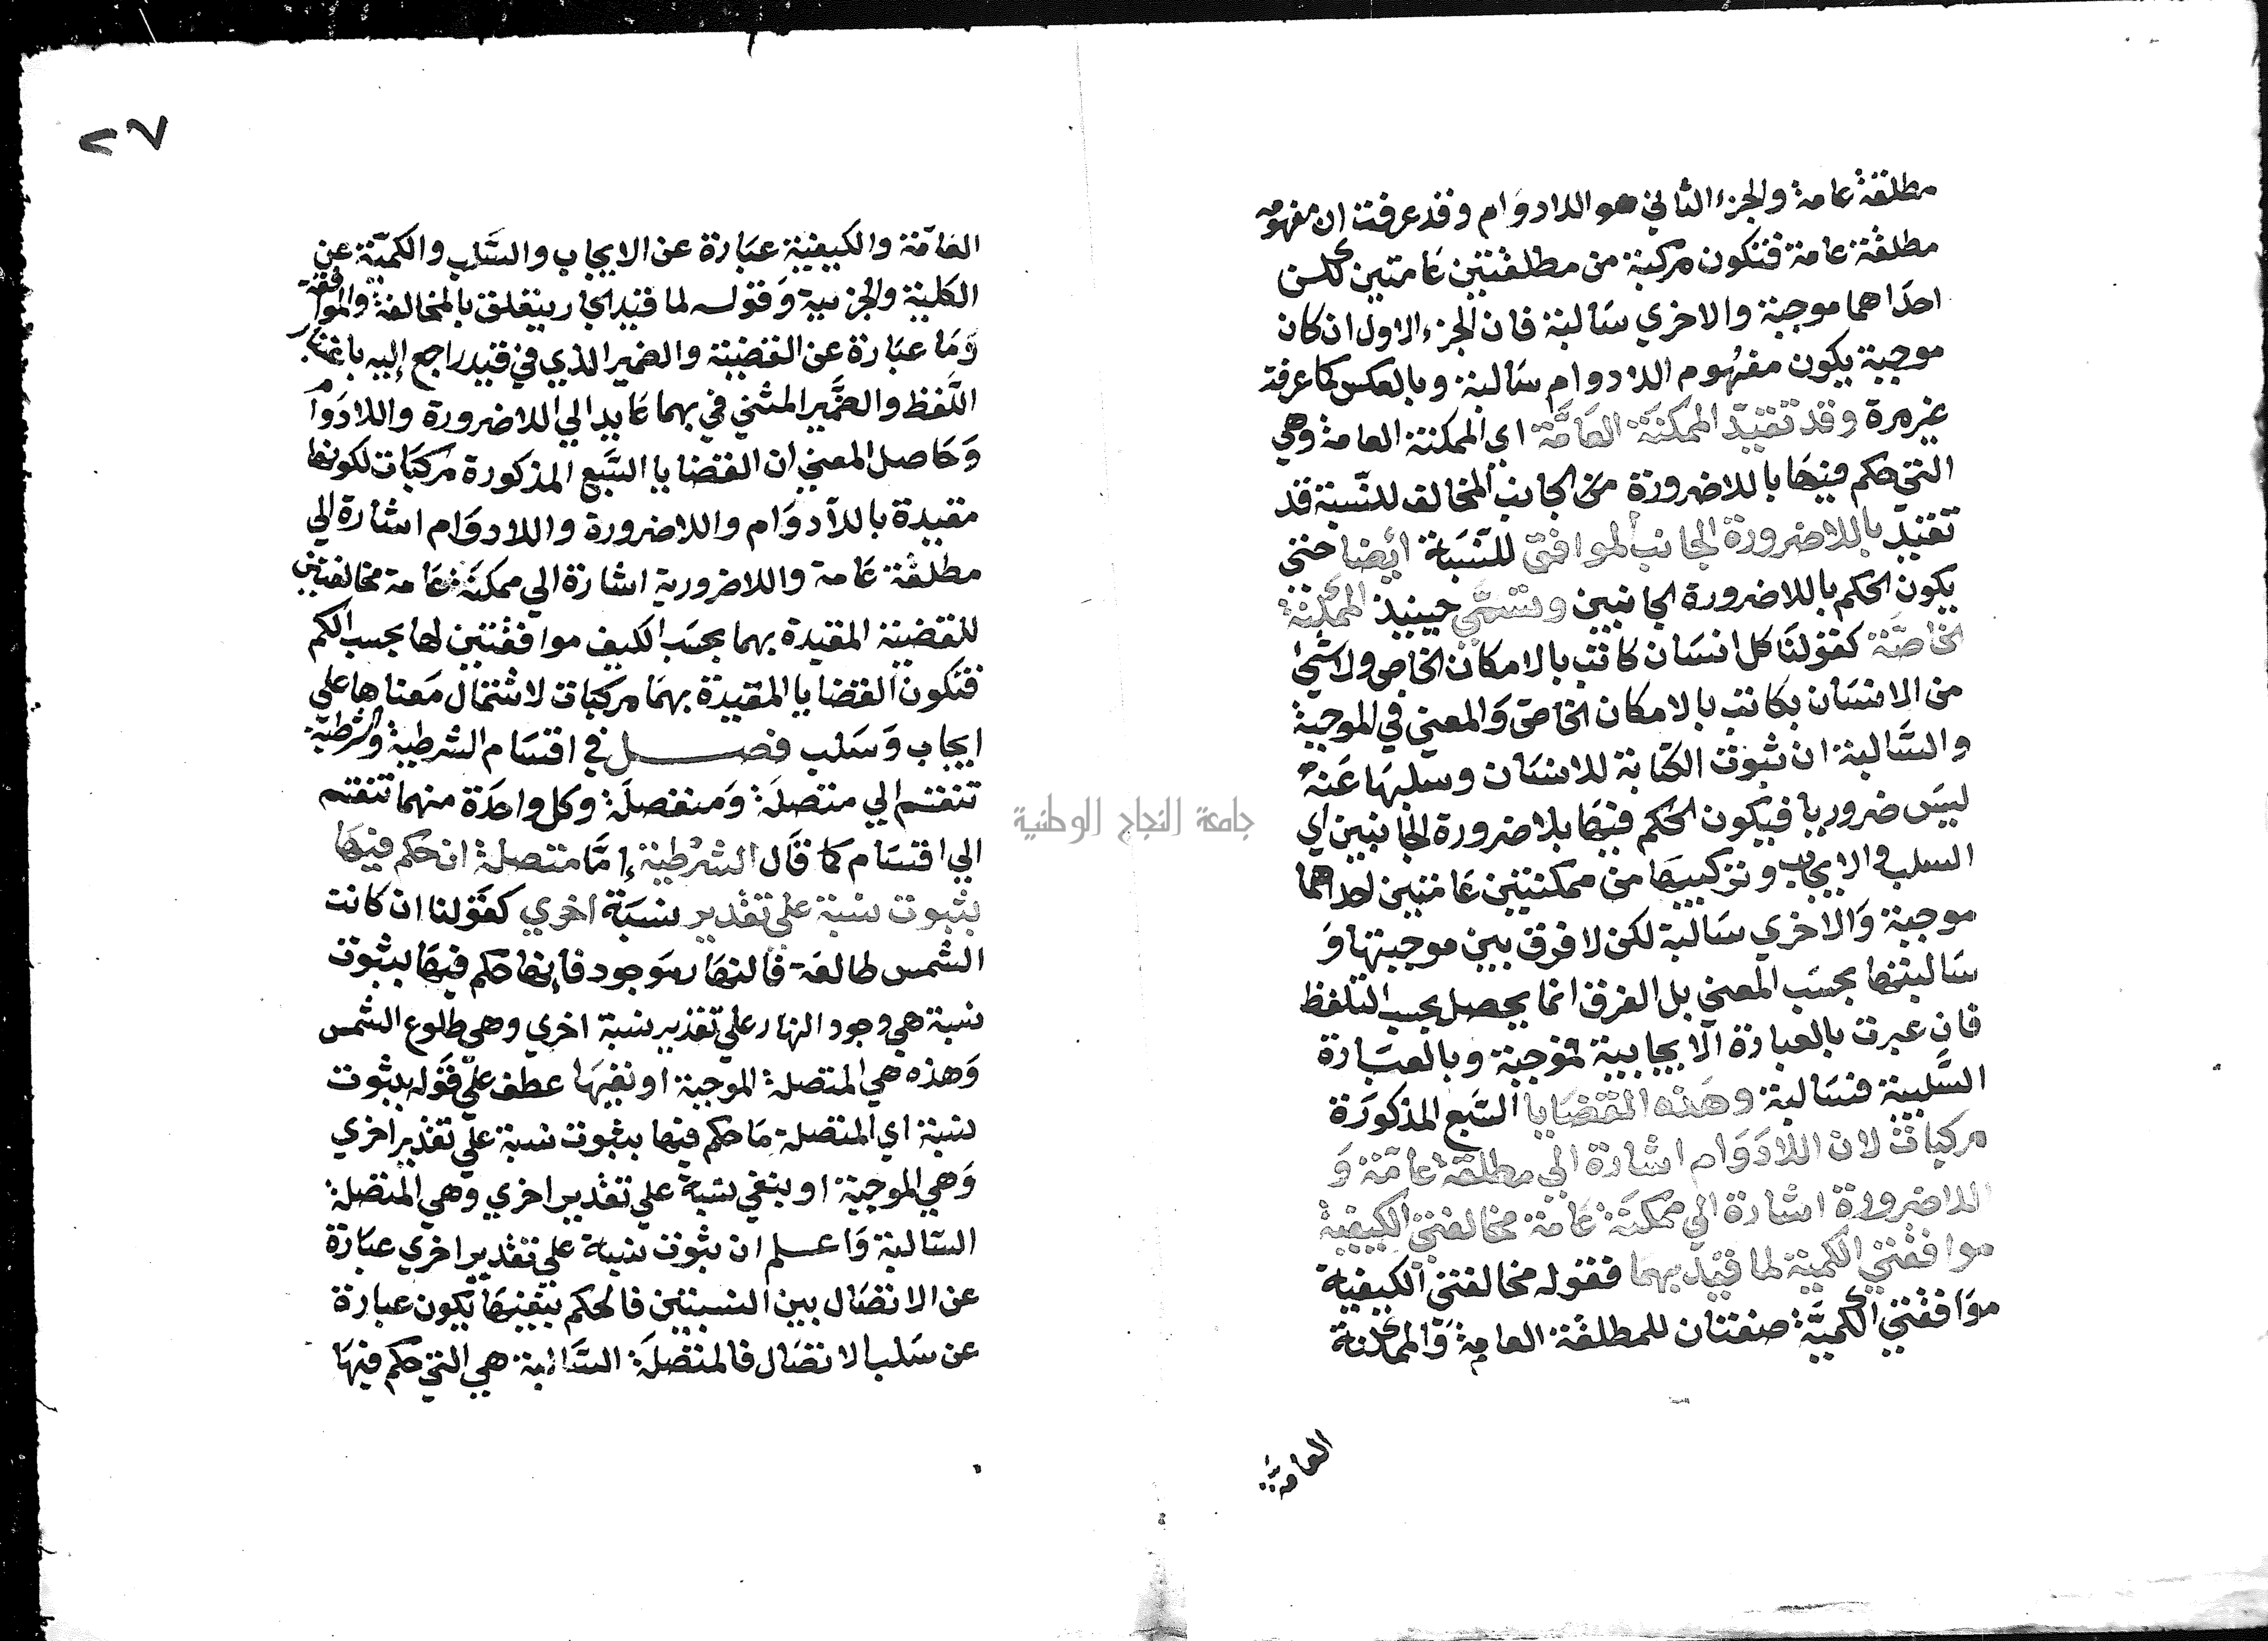 مطلقة عامة والجزء الثاني هو اللادوام وقد عرفت ان مفهومه
مطلقة عامة فتكون مركبة من مطلقتين عامتين لكن
احداهما موجبة والاخري سالبة فان الجزء الاول ان كان
موجبة يكون مفهوم اللادوام سالبة وبالعكس كما عرفت
غير مرة وقد تقيد الممكنة العامة اي الممكنة العامة وهي
التي حكم فيها باللاضرورة من الجانب المخالف للنسبة قد
تقيد باللاضرورة الجانب الموافق للنسبة ايضا حتي
يكون الحكم باللاضرورة الجانبين وتسمي حينيذ الممكنة
الخاصة كقولنا كل انسان كاتب بالامكان الخاص ولا شيء
من الانسان بكاتب بالامكان الخاص والمعني في الموجبة
والسالبة ان ثبوت الكتابة للانسان وسلبها عنه
ليس ضروريا فيكون الحكم فيها بلاضرورة الجانبين اي
السلب والايجاب وتركيبها من ممكنتين عامتين احداهما
موجبة والاخري سالبة لكن لا فرق بين موجبتها و
سالبتها بحسب المعني بل الفرق انما يحصل بحسب التلفظ
فان عبرت بالعبارة الايجابية فموجبة وبالعبارة
السلبية فسالبة وهذه القضايا السبع المذكورة
مركبات لان اللادوام اشارة الي مطلقة عامة و
اللاضرورة اشارة الي ممكنة عامة مخالفتي الكيفية
موافقتي الكمية لما قيد بهما فقوله مخالفتي الكيفية
موافقتي الكمية صفتان للمطلقة العامة والممكنة
العامة
٢٧
العامة والكيفية عبارة عن الايجاب والسلب والكمية عن
الكلية والجزيية وقوله لما قيد الجار يتعلق بالمخالفة والموافقة
وما عبارة عن القضية والضمير الذي في قيد راجع إليه باعتبار
اللفظ والضمير المثني في بهما عايد الي اللاضرورة واللادوام
وحاصل المعني ان القضايا السبع المذكورة مركبات لكونها
مقيدة باللادوام واللاضرورة واللادوام اشارة الي
مطلقة عامة واللاضرورية اشارة الي ممكنة عامة مخالفتين
للقضية المقيدة بهما بحسب الكيف موافقتين لها بحسب الكم
فتكون القضايا المقيدة بهما مركبات لاشتمال معناها علي
ايجاب وسلب فصل في اقسام الشرطية والشرطية
تنقسم الي متصلة ومنفصلة وكل واحدة منهما تنقسم
الي اقسام كما قال الشرطية إما متصلة ان حكم فيها
بثبوت نسبة علي تقدير نسبة اخري كقولنا ان كانت
الشمس طالعة فالنهار موجود فإنها حكم فيها بثبوت
نسبة هي وجود النهار علي تقدير نسبة اخري وهي طلوع الشمس
وهذه هي المتصلة الموجبة او نفيها عطف علي قوله بثبوت
نسبة اي المتصلة ما حكم فيها بثبوت نسبة علي تقدير اخري
وهي الموجبة او بنفي نسبة علي تقدير اخري وهي المتصلة
السالبة واعلم ان ثبوت نسبة علي تقدير اخري عبارة
عن الاتصال بين النسبتين فالحكم بنفيها يكون عبارة
عن سلب الاتصال فالمتصلة السالبة هي التي حكم فيها
جامعة النجاح الوطنية